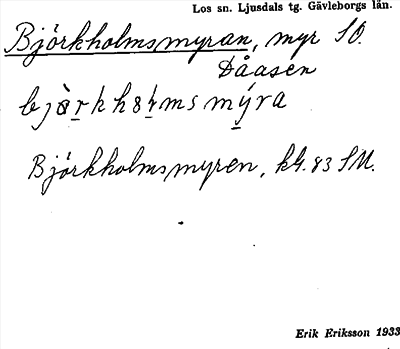 Los sn. Ljusdals tg. Gävleborgs län.
Björkholmsmyran, myr SO.
Dåasen
bjòrkh8lmsmýra
Björkholmsmyren, kbl. 83 SM.
Erik Eriksson 1933